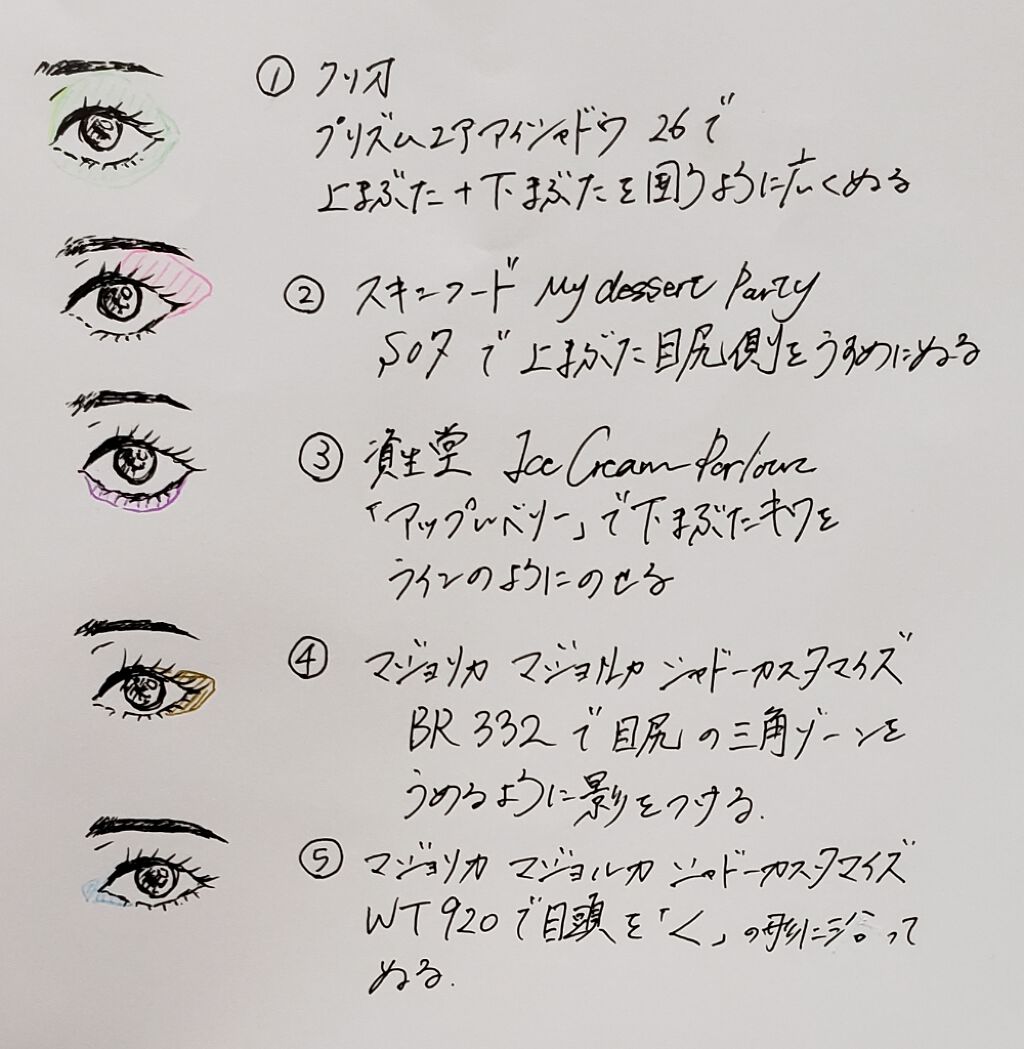 ① クリオ
プリズムエアアイシャドウ 26で
上まぶた+下まぶたを囲うように広くぬる
② スキンフード My dessert Party
S07 で上まぶた目尻側をうすめにぬる
③ 資生堂 Ice Cream Parlour
「アップルベリー」で下まぶたキワを
ラインのようにのせる
④ マジョリカ マジョルカ シャドーカスタマイズ
BR332で目尻の三角ゾーンを
うめるように影をつける.
⑤ マジョリカ マジョルカ シャドーカスタマイズ
WT920で目頭を「く」の形に沿って
ぬる.